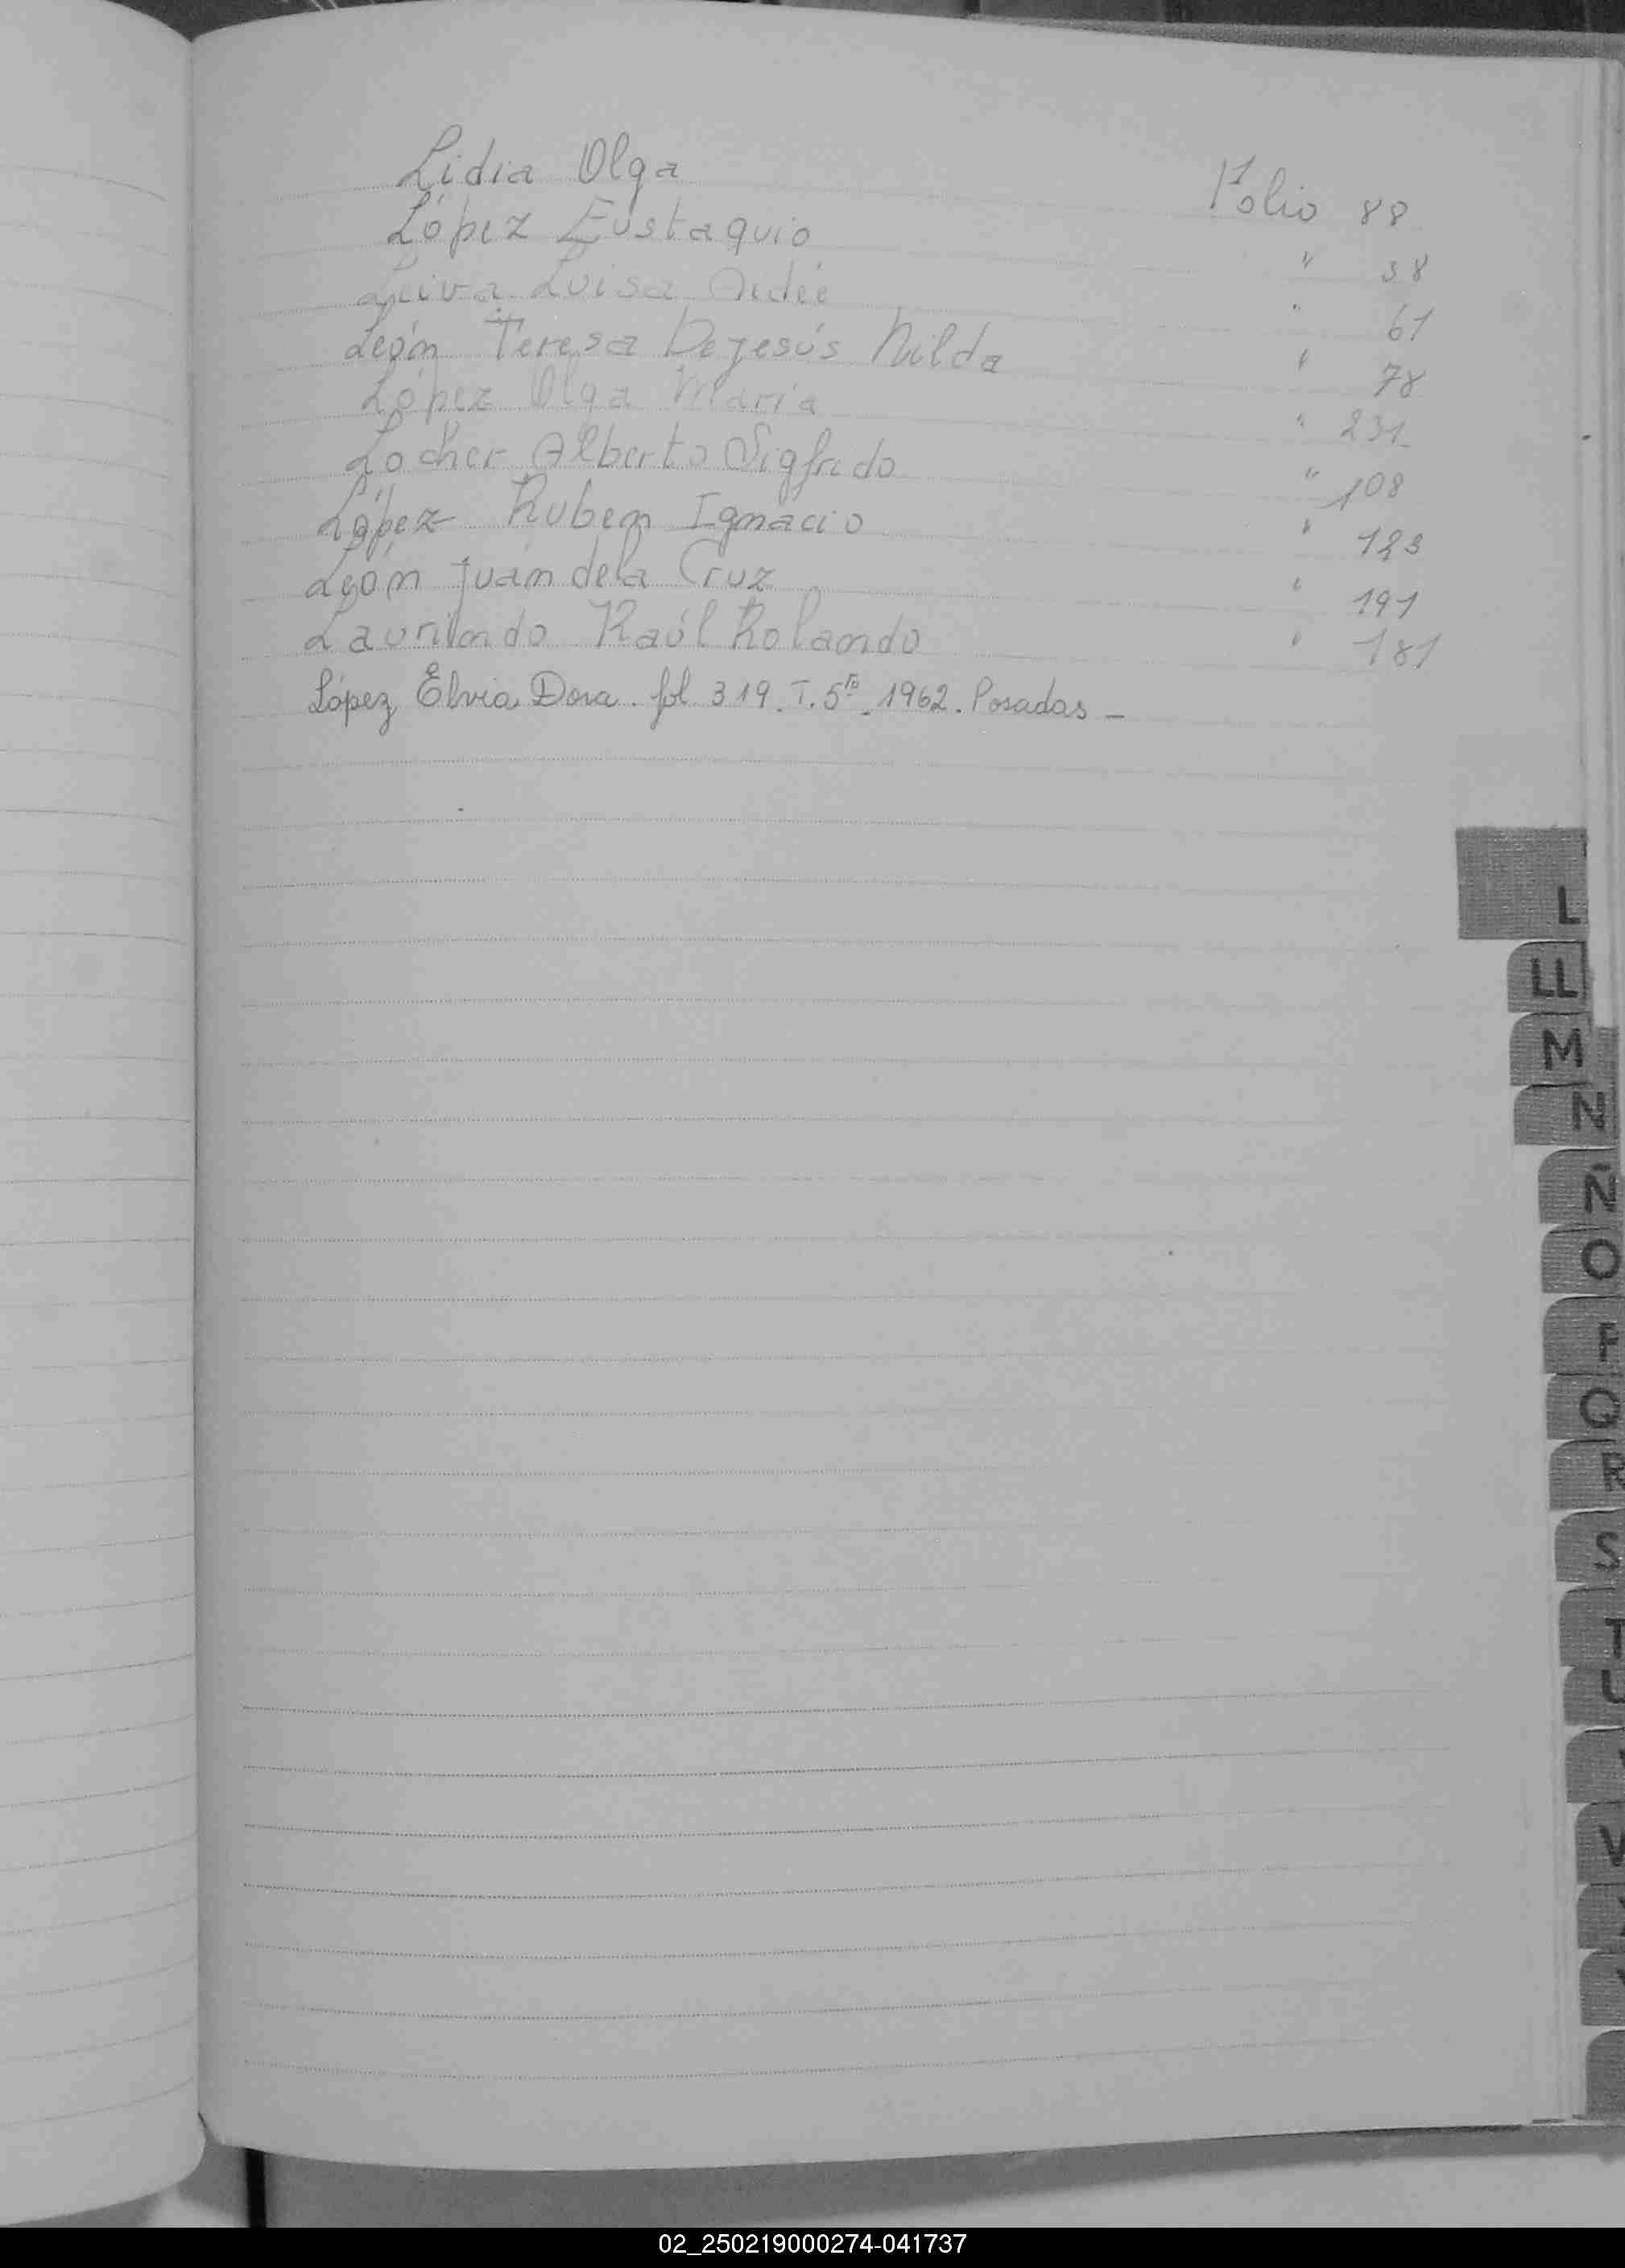 Lidia Olga Folio 88
López Eustaquio " 38
Leiva Luisa Aidée " 61
León Teresa Dejesús Nilda " 78
López Olga María " 231
Locher Alberto Sigfrido " 108
López Rubem Ignacio " 123
León Juan dela Cruz " 191
Laurindo Raúl Rolando " 181
López Elvia Dora. fol 319. T. 5º. 1962. Posadas -
L
LL
M
N
Ñ
O
P
Q
R
S
T
U
V
02_250219000274-041737